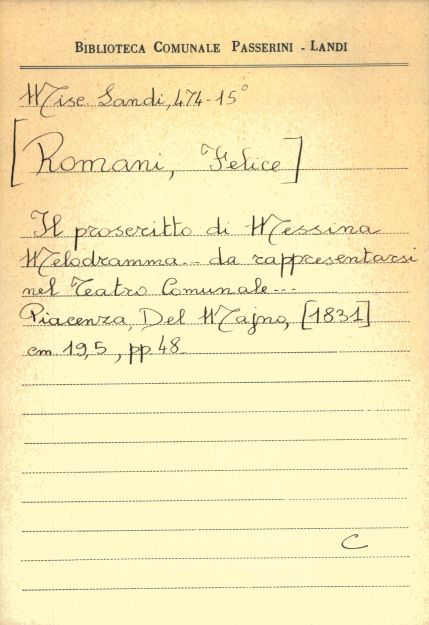 BIBLIOTECA COMUNALE PASSERINI - LANDI
Misc. Landi, 474-15°
[Romani, Felice]
Il proscritto di Messina
Melodramma... da rappresentarsi
nel Teatro Comunale...
Piacenza, Del Majno, [1831]
cm 19,5, pp 48
C